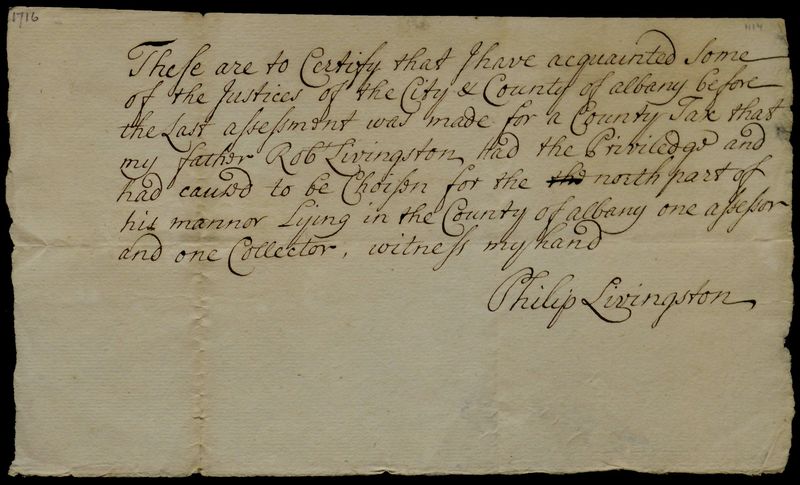 1716
1114
These are to Certify that I have acquainted Some
of the Justices of the City & County of albany before
the Last assessment was made for a County Tax that
my father Robt Livingston had the Priviledge and
had caused to be Choisen for the the north part of
his mannor Lying in the County of albany one assessor
and one Collector, witness my hand
Philip Livingston